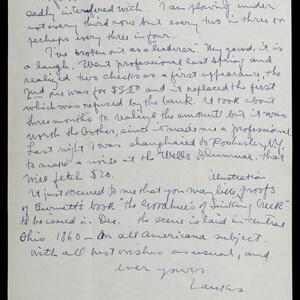 badly interfered with. I am plowing under
not every third row but every two in three or
perhaps every three in four.
I've broken out as a leaderer. My gawd, it is
a laugh. Went professional last spring and
realized two checks as a first appearance, the
2nd one was for $5.00 and it replaced the first
which was refused by the bank. It took about
three months to realize the amount but it was
worth the bother, since it made me a professional.
Last night I was shanghaied to Rochester, N.Y.
to make a noise at the Wells that
will fetch $20.
illustration
It just occured to me that you may like proofs
of Burnett's book "The Goodhues of Sinking Creek"
to be issued in Dec. The scene is laid in central
Ohio 1860 — an all Americana subject.
With all best wishes as usual, and
ever yours
Lankes